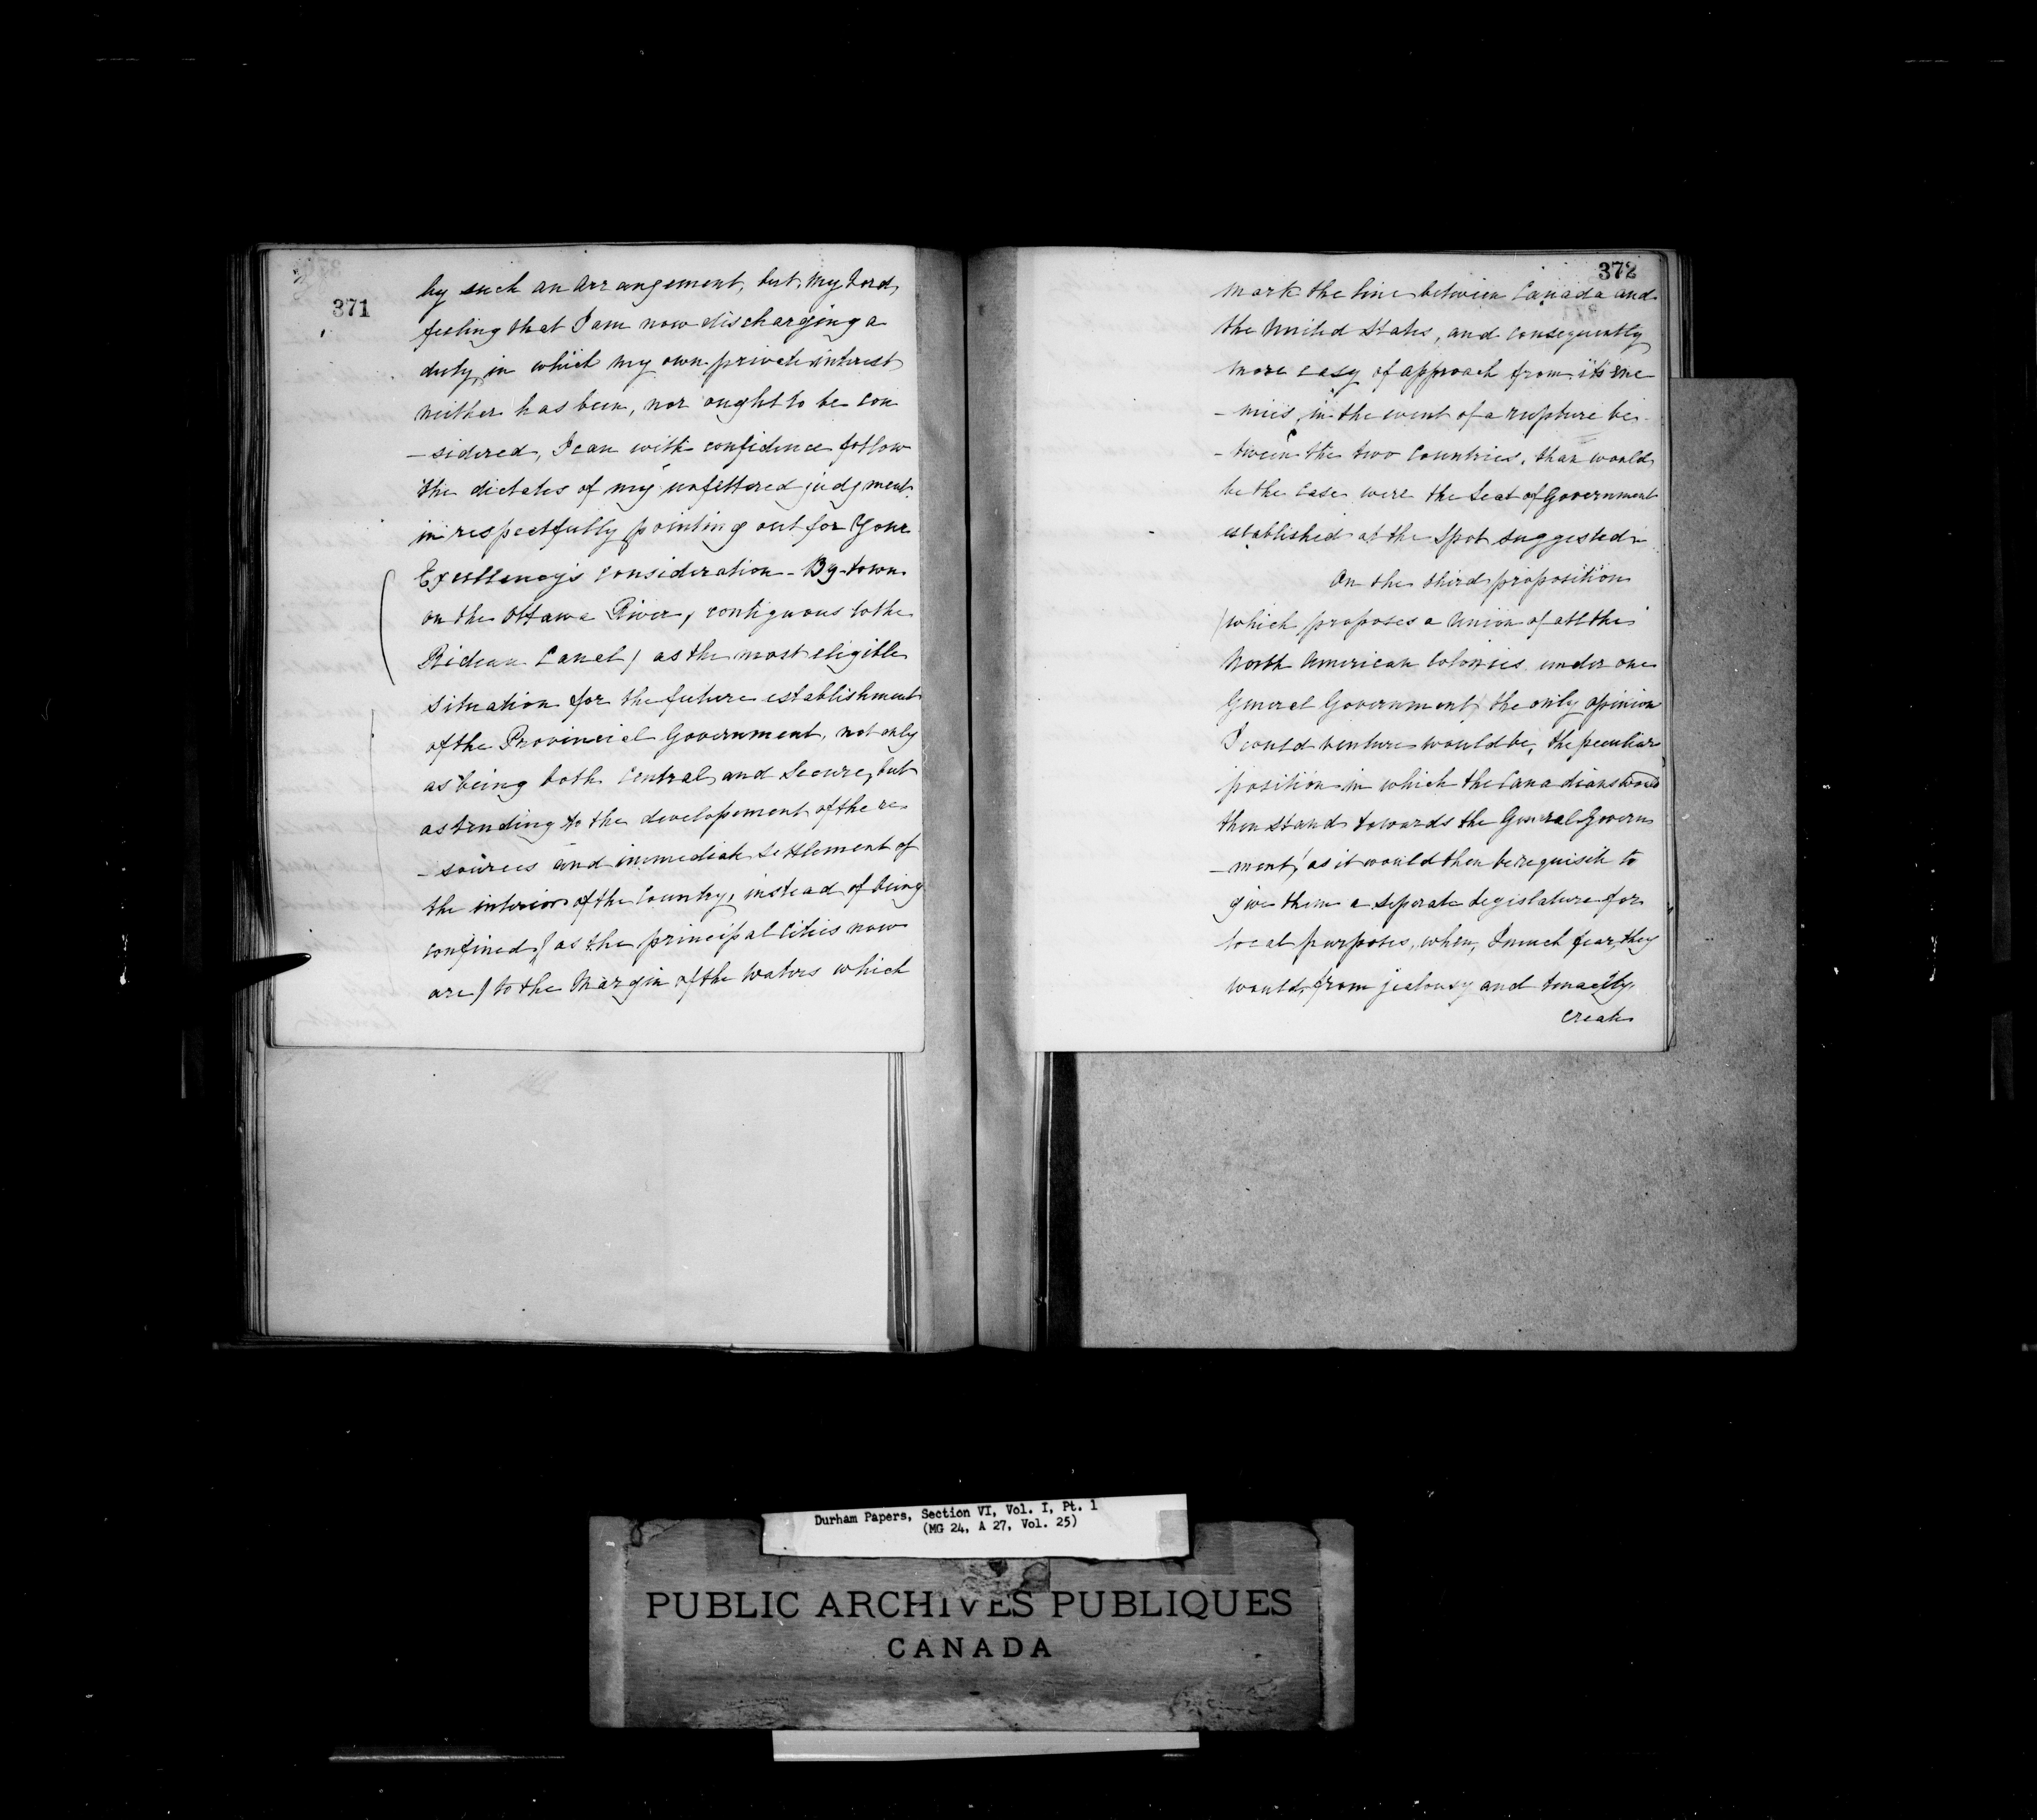 371
by such an arrangement, but, My Lord,
feeling that I am now discharging a
duty, in which my own private interest
neither has been, nor ought to be con
-sidered, I can with confidence follow
the dictates of my unfettered judgment
in respectfully pointing out for Your
Excellency's consideration - By-town
on the Ottawa River, contiguous to the
Rideau Canal) as the most eligible
situation for the future establishment
of the Provincial Government, not only
as being both Central and Secure, but
as tending to the developement of the re
-sources and immediate settlement of
the interior of the Country, instead of being
confined (as the principal Cities now
are) to the Margin of the Waters which
372
mark the line between Canada and
the United States, and consequently
more easy of approach from its ene
-mies, in the event of a rupture be
-tween the two Countries, than would
be the Case were the Seat of Government
established at the Spot suggested.
On the third proposition
(which proposes a Union of all the
North American Colonies under one
General Government) the only opinion
I could venture would be, the peculiar
position in which the Canadians would
then stand towards the General Govern
-ment, as it would then be requisite to
give them a seperate Legislature for
local purposes, when, I much fear, they
would, from jealousy and tenacity,
create
Durham Papers, Section VI, Vol. I, Pt. 1
(MG 24, A 27, Vol. 25)
PUBLIC ARCHIVES PUBLIQUES
CANADA